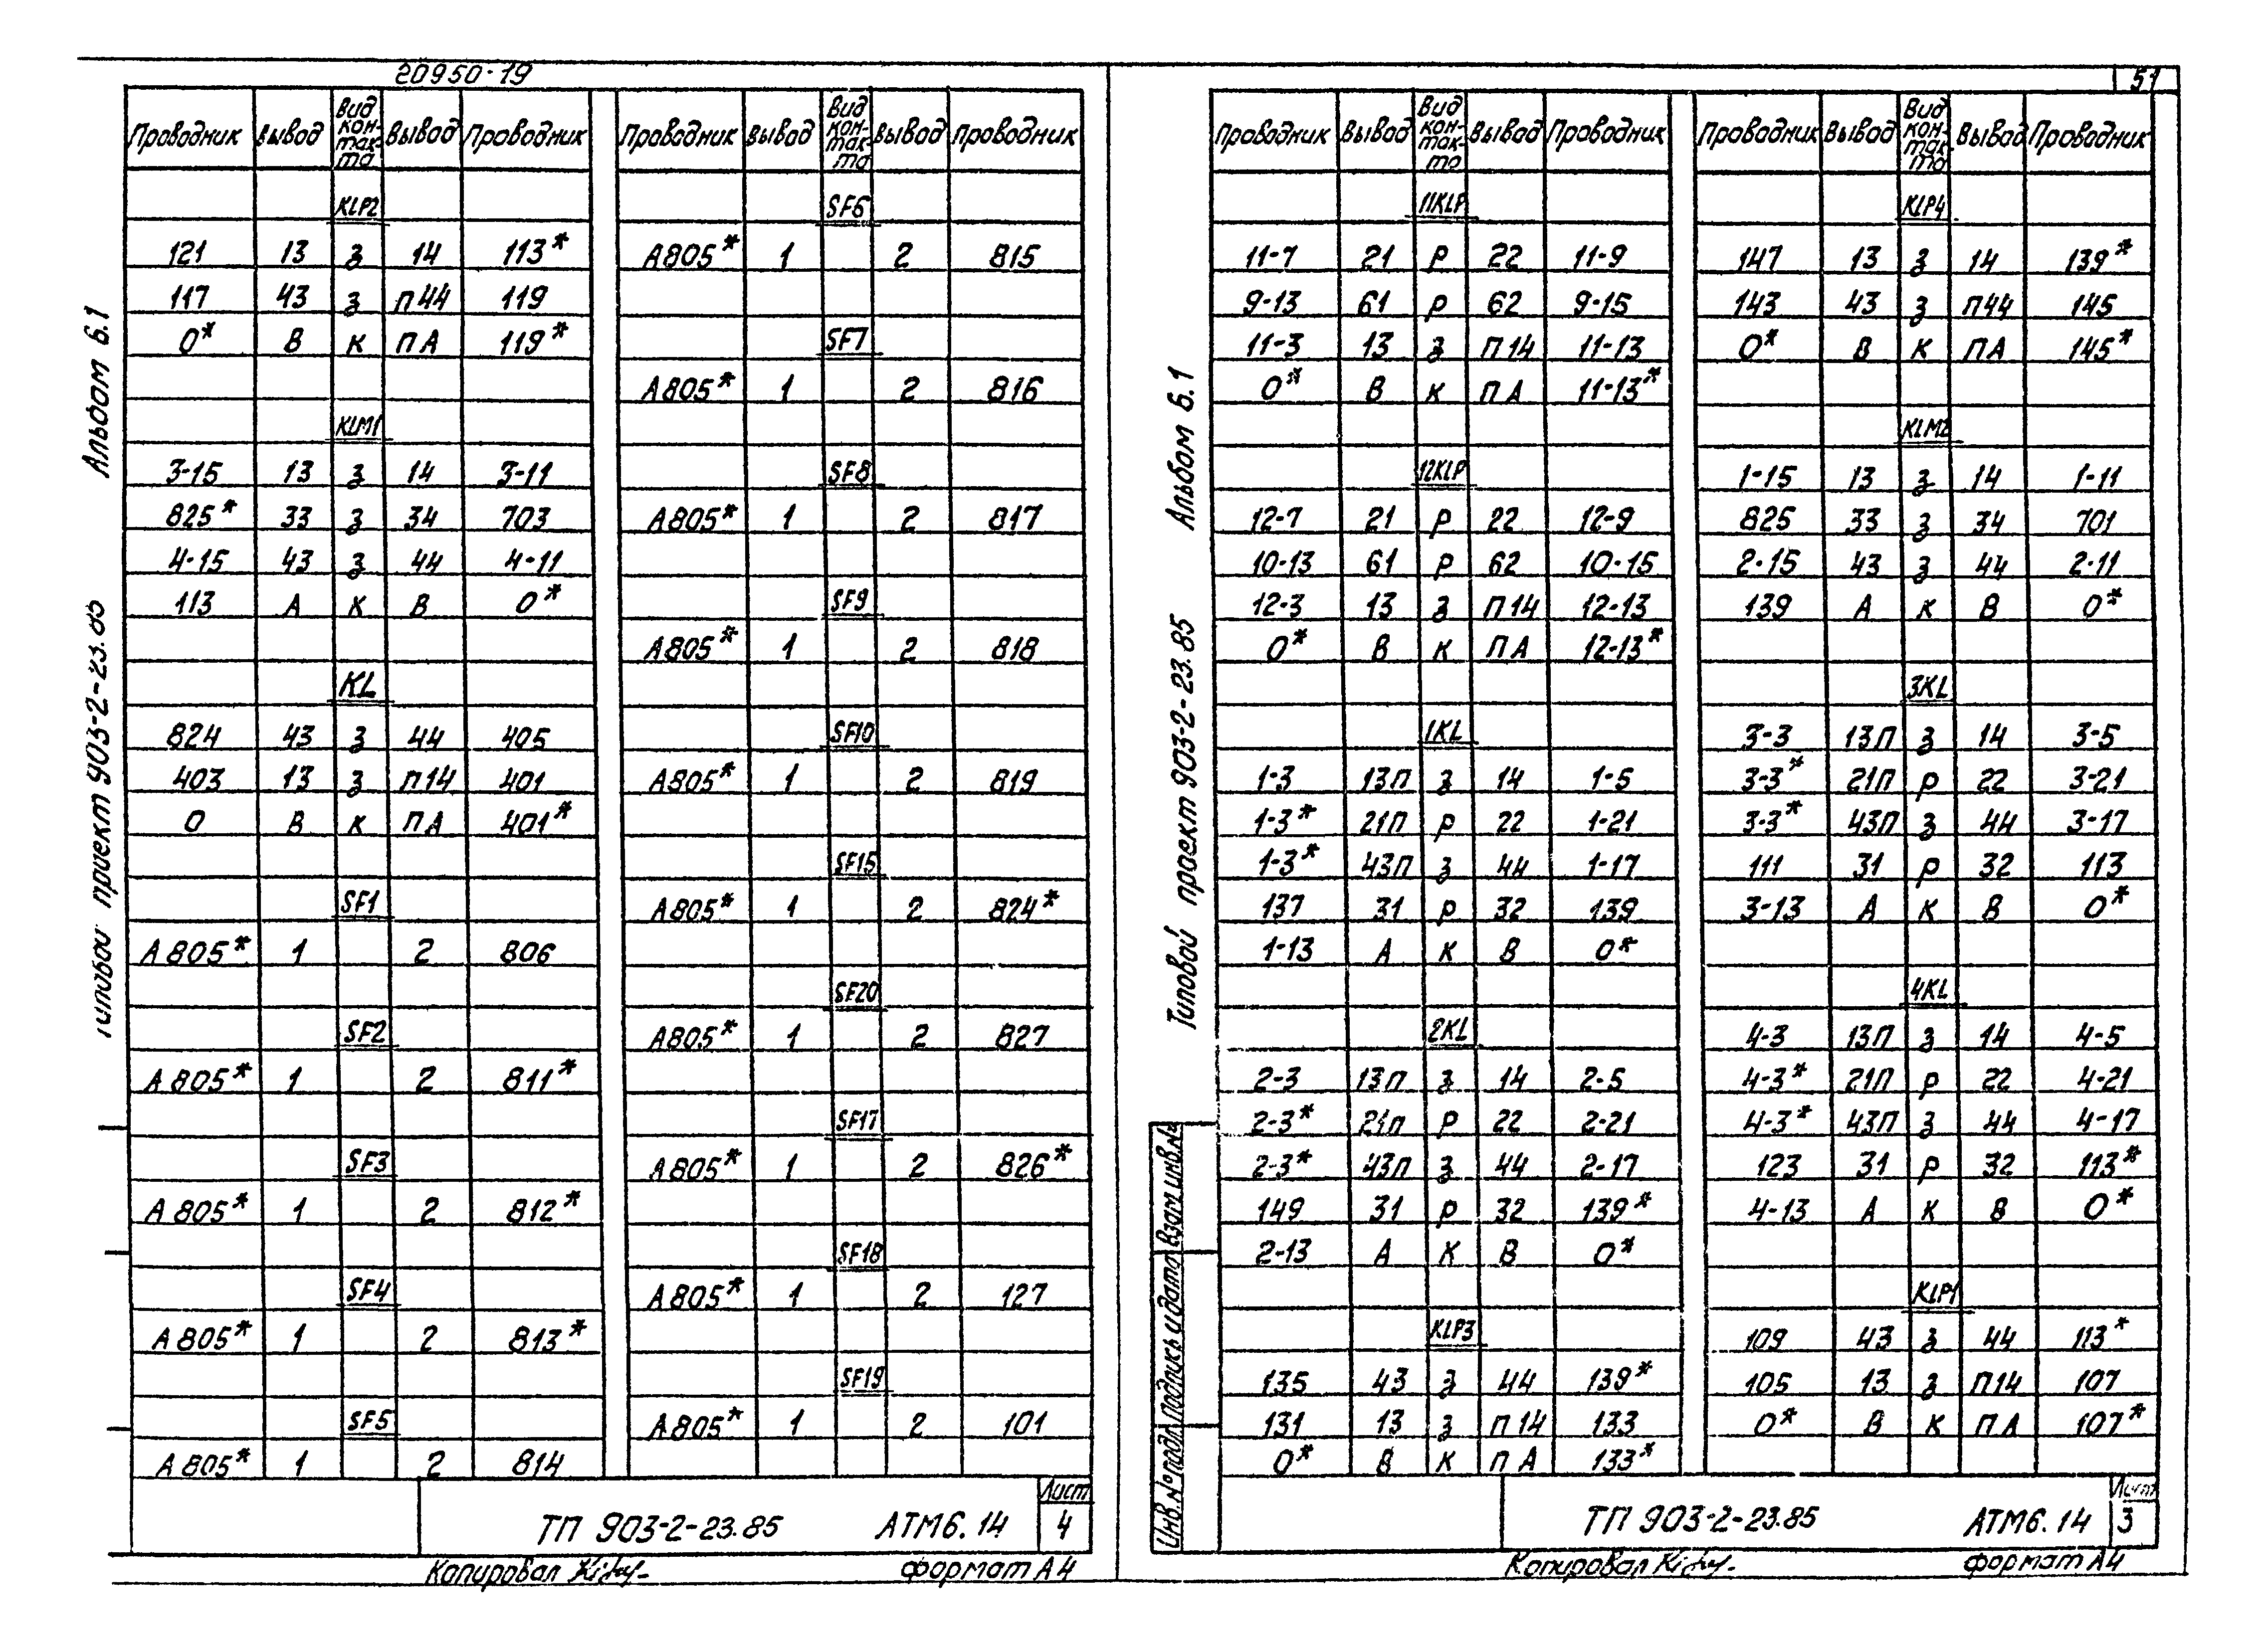 20950-19
51
Проводник Вывод Вид контакта Вывод Проводник
KLP2
121 13 з 14 113*
117 43 з П44 119
0* В К ПА 119*
KLM1
3-15 13 з 14 3-11
825* 33 з 34 703
4-15 43 з 44 4-11
113 А К В 0*
KL
824 43 з 44 405
403 13 з П14 401
0 В К ПА 401*
SF1
А805* 1 2 806
SF2
А805* 1 2 811*
SF3
А805* 1 2 812*
SF4
А805* 1 2 813*
SF5
А805* 1 2 814
Проводник Вывод Вид контакта Вывод Проводник
SF6
А805* 1 2 815
SF7
А805* 1 2 816
SF8
А805* 1 2 817
SF9
А805* 1 2 818
SF10
А805* 1 2 819
SF15
А805* 1 2 824*
SF20
А805* 1 2 827
SF17
А805* 1 2 826*
SF18
А805* 1 2 127
SF19
А805* 1 2 101
Альбом 6.1
Типовой проект 903-2-23.85
ТП 903-2-23.85 АТМ6.14
Лист
4
Копировал
формат А4
Проводник Вывод Вид контакта Вывод Проводник
11KLP
11-7 21 Р 22 11-9
9-13 61 Р 62 9-15
11-3 13 з П14 11-13
0* В К ПА 11-13*
12KLP
12-7 21 Р 22 12-9
10-13 61 Р 62 10-15
12-3 13 з П14 12-13
0* В К ПА 12-13*
1KL
1-3 13П з 14 1-5
1-3* 21П Р 22 1-21
1-3* 43П з 44 1-17
137 31 Р 32 139
1-13 А К В 0*
2KL
2-3 13П з 14 2-5
2-3* 21П Р 22 2-21
2-3* 43П з 44 2-17
149 31 Р 32 139*
2-13 А К В 0*
KLP3
135 43 з 44 139*
131 13 з П14 133
0* В К ПА 133*
Проводник Вывод Вид контакта Вывод Проводник
KLP4
147 13 з 14 139*
143 43 з П44 145
0* В К ПА 145*
KLM2
1-15 13 з 14 1-11
825 33 з 34 701
2-15 43 з 44 2-11
139 А К В 0*
3KL
3-3 13П з 14 3-5
3-3* 21П Р 22 3-21
3-3* 43П з 44 3-17
111 31 Р 32 113
3-13 А К В 0*
4KL
4-3 13П з 14 4-5
4-3* 21П Р 22 4-21
4-3* 43П з 44 4-17
123 31 Р 32 113*
4-13 А К В 0*
KLP1
109 43 з 44 113*
105 13 з П14 107
0* В К ПА 107*
Альбом 6.1
Типовой проект 903-2-23.85
Инв.№ подл. Подпись и дата Взам инв.№
ТП 903-2-23.85 АТМ6.14
Лист
3
Копировал
формат А4